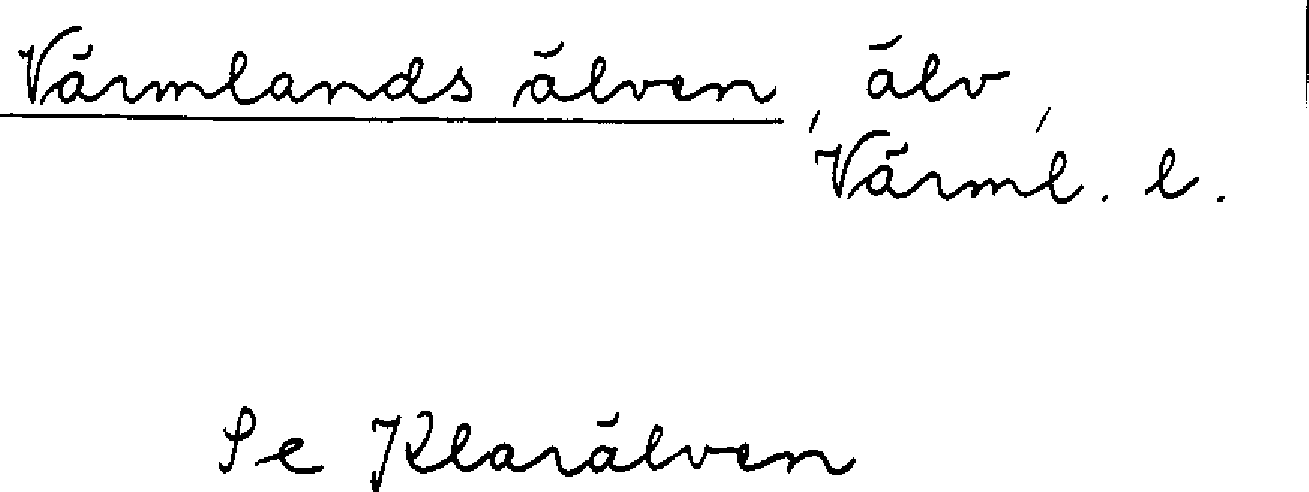 Värmlands älven, älv,
Värml. l.
Se Klarälven